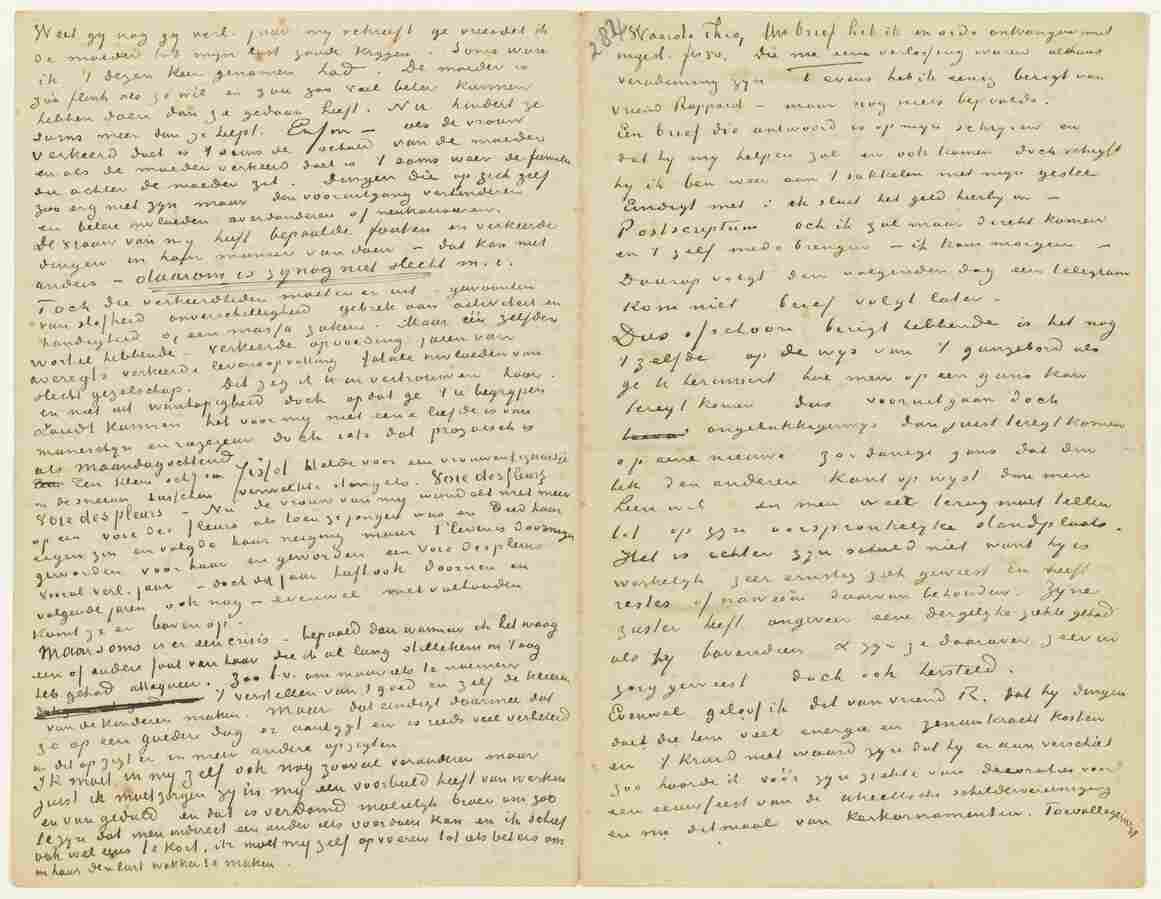 Weet gij nog gij verl. jaar mij schreeft ge vreesdet ik
de moeder tot mijn last zoude krijgen. Soms ware
ik 't dezen keer genomen had. De moeder is
zoo flink als ze wil en zou zoo veel beter kunnen
hebben doen dan ze gedaan heeft. Nu hindert ze
soms meer dan ze helpt. Enfin – als de vrouw
verkeerd doet is 't soms de schuld van de moeder
en als de moeder verkeerd doet is 't soms weer de familie
die achter de moeder zit. Dingen die op zich zelf
zoo erg niet zijn maar den vooruitgang verhinderen
en betere invloeden overdonderen of neutraliseeren.
De vrouw van mij heeft bepaalde fouten en verkeerde
dingen in haar manier van doen – dat kan niet
anders – daarom is zij nog niet slecht m.i.
Toch die verkeerdheden moeten er uit – gewoonten
van slofheid onverschilligheid gebrek aan activiteit en
handigheid o, een massa zaken. Maar één zelfden
wortel hebbende – verkeerde opvoeding jaren van
averegts verkeerde levensopvatting fatale invloeden van
slecht gezelschap. Dit zeg ik U in vertrouwen hoor.
en niet uit wanhopigheid doch opdat ge 't U begrijpen
zoudt kunnen het voor mij niet eene liefde is van
maneschijn en rozegeur doch iets dat prozaisch is
als Maandagochtend.
Een klein schij van Tissot beeldde voor een vrouwenfiguurtje
in de sneeuw tusschen verwelkte stengels. Voie des fleurs
Voie des pleurs – Nu de vrouw van mij wandelt niet meer
op een voie des fleurs als toen ze jonger was en deed haar
eigen zin en volgde haar neiging maar 't leven is doorniger
geworden voor haar en geworden een voie des pleurs
vooral verl. jaar – doch dit jaar heeft ook doornen en
volgende jaren ook nog – evenwel met volhouden
komt ze er boven op.
Maar soms is er een crisis – bepaald dan wanneer ik het waag
een of andere fout van haar die ik al lang stillekens in 't oog
heb gehad attaqueer. Zoo b.v. om maar iets te noemen
't verstellen van 't goed en zelf de kleeren
van de kinderen maken. Maar dat eindigt daarmee dat
ze op een goeden dag er aantijgt en is reeds veel verbeterd
in dit opzigt en in meer andere opzigten
Ik moet in mij zelf ook nog zooveel veranderen maar
juist ik moet zorgen zij in mij een voorbeeld heeft van werken
en van geduld en dat is verdomd moeielijk broer om zoo
te zijn dat men indirect een ander iets voordoen kan en ik schiet
ook wel eens te kort, ik moet mij zelf opvoeren tot iets beters om
in haar den lust wakker te maken.
284
Waarde Theo, Uw brief heb ik in orde ontvangen met
ingesl. fr 50. Die me eene verlossing waren althans
verademing zijn 't Evens heb ik eenig berigt van
vriend Rappard – maar nog niets bepaalds.
Een brief die antwoord is op mijn schrijven en
dat hij mij helpen zal en ook komen doch schrijft
hij ik ben weer aan 't sukkelen met mijn gestel
Eindigt met : ik sluit het geld hierbij in –
Postscriptum och ik zal maar direkt komen
en 't zelf mede brengen – ik kom morgen –
Daarop volgt den volgenden dag een telegram
Kom niet brief volgt later.
Dus ofschoon berigt hebbende is het nog
't zelfde op de wijs van 't ganzebord als
ge U herinnert hoe men op een gans kan
teregt komen dus vooruitgaan doch
ongelukkigerwijs dan juist teregt komen
op eene nieuwe zoodanige gans dat den
bek den anderen kant op wijst dan men
heen wil en men weer terug moet tellen
tot op zijn oorspronkelijke standplaats.
Het is echter zijn schuld niet want hij is
werkelijk zeer ernstig ziek geweest en heeft
restes of naweeën daarvan behouden. Zijne
zuster heeft ongeveer eene dergelijke ziekte gehad
als hij bovendien & zijn ze daarover zeer in
zorg geweest doch ook hersteld.
Evenwel geloof ik dit van vriend R. dat hij dingen
doet die hem veel energie en zenuwkracht kosten
en 't kruid niet waard zijn dat hij er aan verschiet
zoo hoorde ik vóór zijn ziekte van decoraties voor
een eeuwfeest van de Utrechtsche schildervereeniging
en nu ditmaal van kerkornamenten. Toevalligerwijs